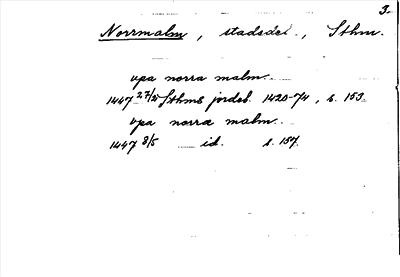 3.
Norrmalm, stadsdel., Sthm.
upa norra malm.
1447 27/2 Sthms jordeb. 1420-74, s. 153.
upa norra malm.
1447 8/5 id. s. 157.